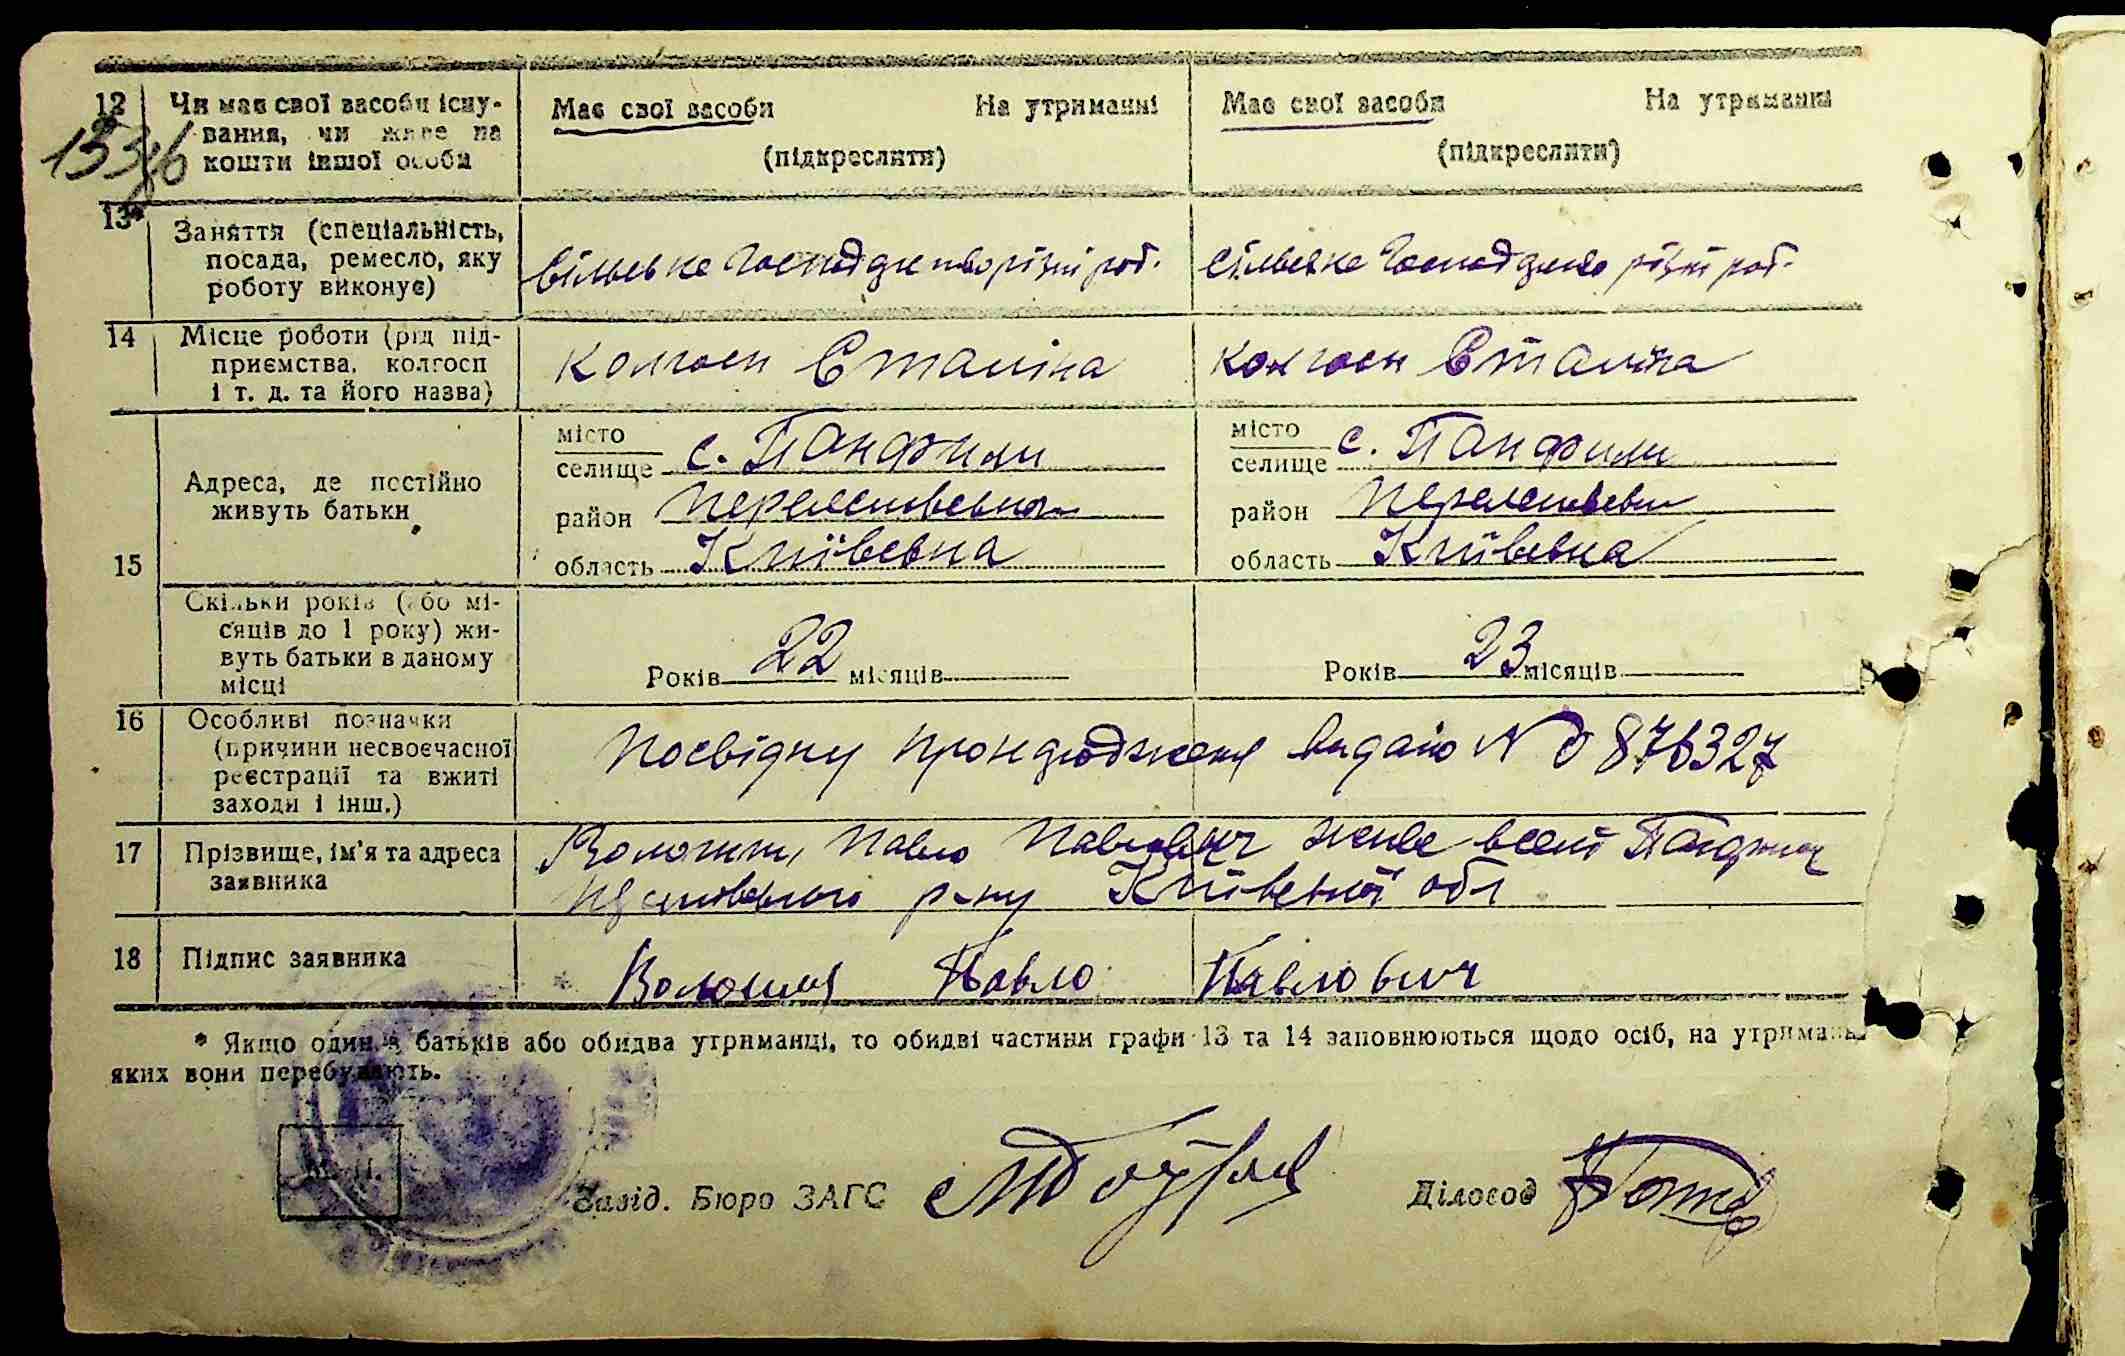 12 Чи має свої засоби існу- Має свої засоби На утриманні Має свої засоби На утриманні
вання, чи живе на (підкреслити) (підкреслити)
кошти іншої особи
13* Заняття (спеціальність,
посада, ремесло, яку сільське господарство різні роб. сільське господарство різні роб.
роботу виконує)
14 Місце роботи (рід під-
приємства, колгосп колгосп Сталіна колгосп Сталіна
і т. д. та його назва)
15 Адреса, де постійно місто селище с. Панфили місто селище с. Панфили
живуть батьки район район
область Київська область Київська
Скільки років (або мі-
сяців до 1 року) жи- Років 22 місяців Років 23 місяців
вуть батьки в даному
місці
16 Особливі позначки
(причини несвоєчасної видано №
реєстрації та вжиті
заходи і інш.)
17 Прізвище, ім'я та адреса Павло Павлович живе
заявника р-ну Київської обл
18 Підпис заявника Павло Павлович
* Якщо один з батьків або обидва утриманці, то обидві частини графи 13 та 14 заповнюються щодо осіб, на утриманні
яких вони перебувають.
М. П.
Завід. Бюро ЗАГС Діловод